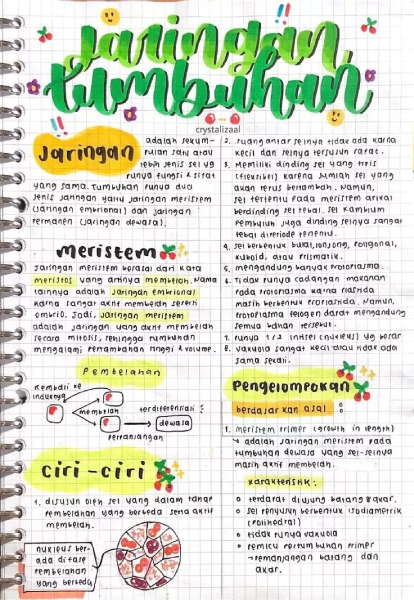 Jaringan
tumbuhan
crystalizaal
Jaringan
adalah sekum-
pulan satu atau
lebih jenis sel yg
punya fungsi & sifat
yang sama. Tumbuhan punya dua
jenis jaringan yaitu jaringan meristem
(jaringan embrional) dan jaringan
permanen (jaringan dewasa).
meristem
jaringan meristem berasal dari kata
meristos yang artinya membelah. Nama
lainnya adalah jaringan embrional
karna sangat aktif membelah seperti
embrio. Jadi, jaringan meristem
adalah jaringan yang aktif membelah
secara mitosis, sehingga tumbuhan
mengalami pertambahan tinggi & volume.
Pembelahan
kembali ke
induknya
membelah
terdiferensiasi
dewasa
perpanjangan
ciri-ciri
1. disusun oleh sel yang dalam tahap
pembelahan yang berbeda serta aktif
membelah.
nukleus ber-
ada di fase
pembelahan
yang berbeda
2. ruang antar selnya tidak ada karna
kecil dan selnya tersusun rapat.
3. Memiliki dinding sel yang tipis
(fleksibel) karena jumlah sel yang
akan terus bertambah. Namun,
sel tertentu pada meristem apikal
berdinding sel tebal. Sel kambium
pembuluh juga dinding selnya sangat
tebal diperiode tertentu.
4. sel berbentuk bulat, lonjong, poligonal,
kuboid, atau prismatik.
5. mengandung banyak protoplasma.
6. Tidak punya cadangan makanan
pada protoplasma karna plastida
masih berbentuk proplastida. Namun,
protoplasma felogen dapat mengandung
semua bahan tersebut.
7. punya 1/2 intisel (nukleus) yg besar
8. vakuola sangat kecil atau tidak ada
sama sekali.
Pengelompokan
berdasarkan asal :
1. meristem primer (growth in length)
↳ adalah jaringan meristem pada
tumbuhan dewasa yang sel-selnya
masih aktif membelah.
karakteristik :
terdapat diujung batang & akar.
sel penyusun berbentuk isodiametrik
(polihedral)
tidak punya vakuola
pemicu pertumbuhan primer
→ pemanjangan batang dan
akar.